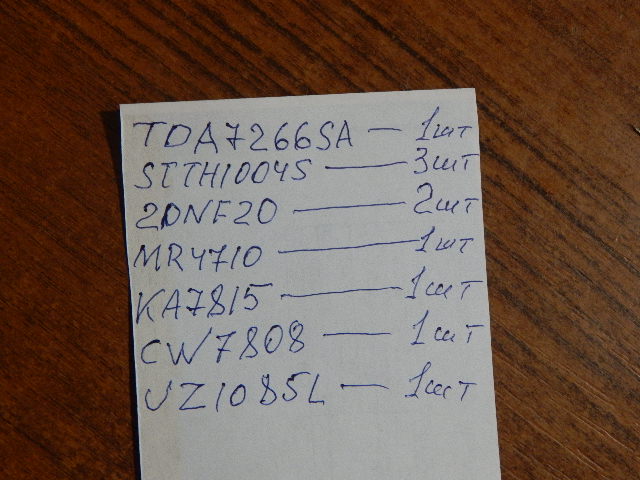 TDA7266SA — 1шт
STTH1004S — 3шт
20NF20 — 2шт
MR4710 — 1шт
KA7815 — 1шт
CW7808 — 1шт
UZ1085L — 1шт